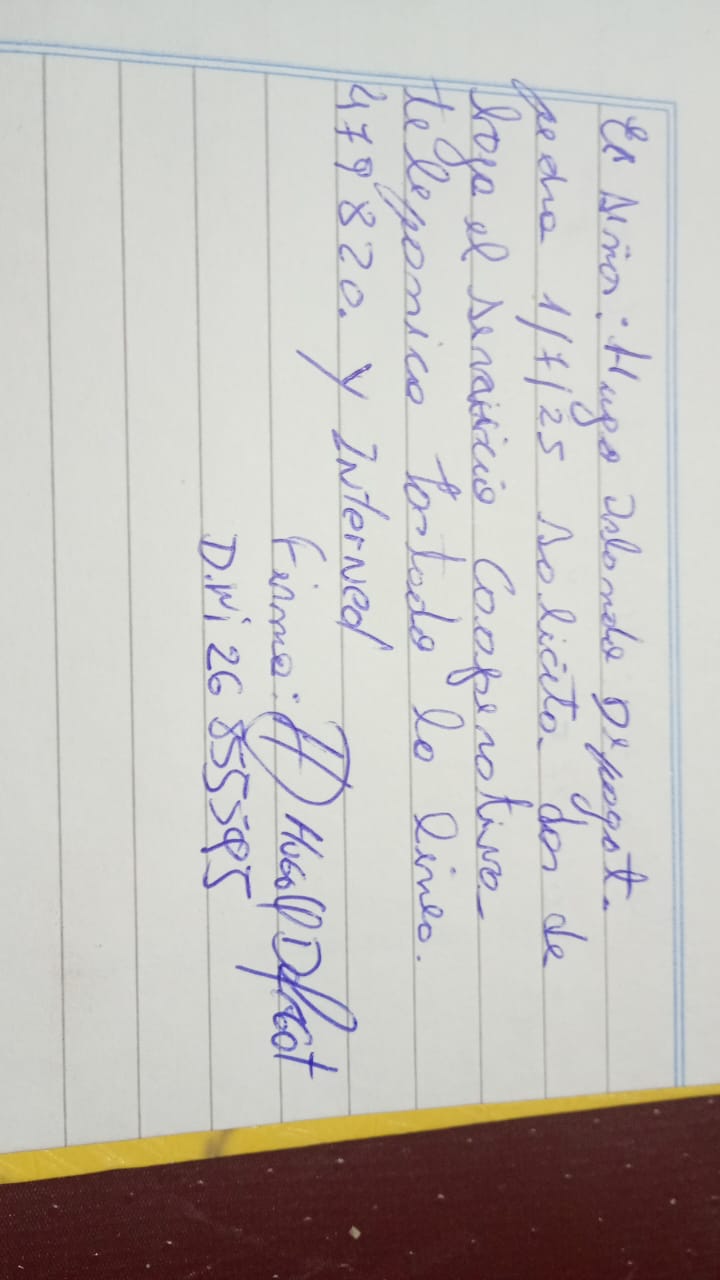 El señor: Hugo Orlando Depogat.
fecha 1/7/25 solicita dar de
baja el servicio Cooperativa
telefonica tortoda la linea.
479820. y Interned
Firma: Hugo Depgat
D.Ni 26 855595